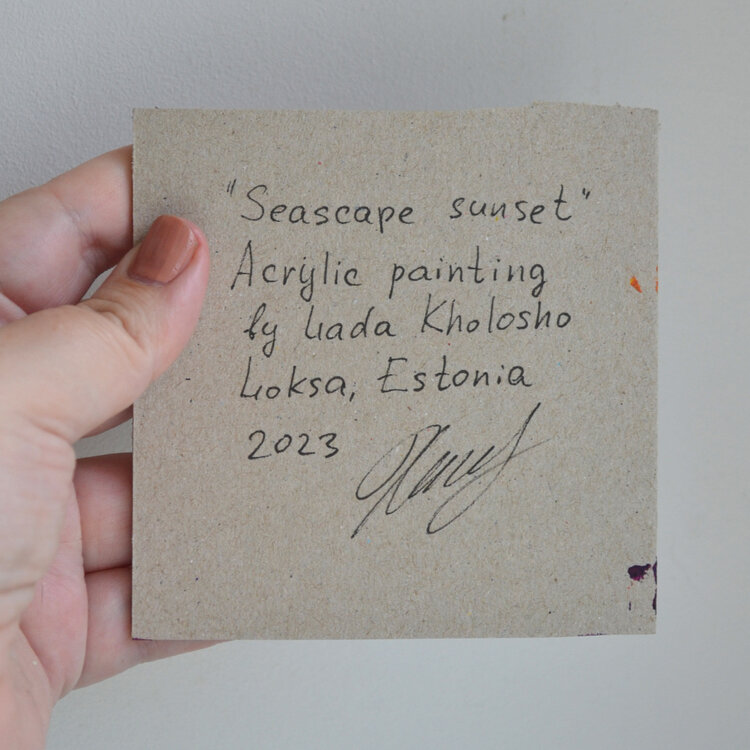 "Seascape sunset"
Acrylic painting
by Lada Kholosho
Loksa, Estonia
2023